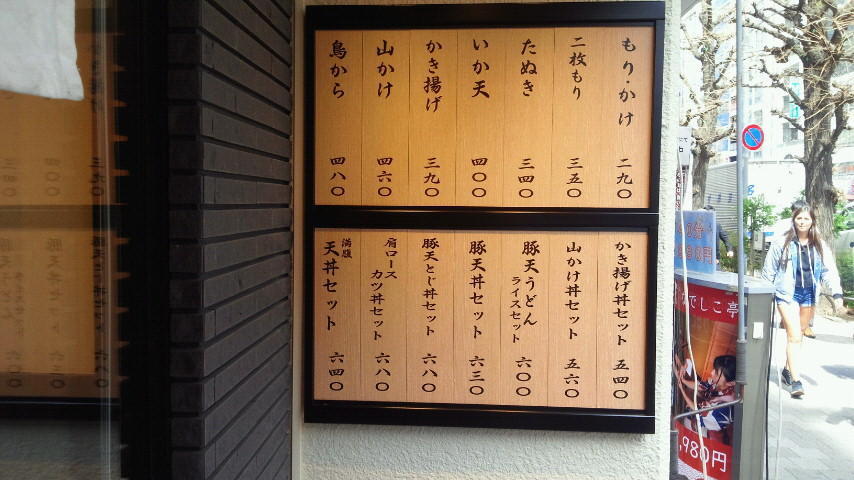 もり・かけ 二九〇
二枚もり 三五〇
たぬき 三四〇
いか天 四〇〇
かき揚げ 三九〇
山かけ 四六〇
鳥から 四八〇
かき揚げ丼セット 五四〇
山かけ丼セット 五六〇
豚天うどん
ライスセット 六〇〇
豚天丼セット 六三〇
豚天とじ丼セット 六八〇
肩ロース
カツ丼セット 六八〇
満腹
天丼セット 六四〇
でしこ亭
,980円